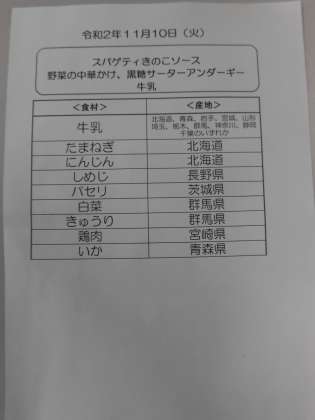 令和2年11月10日（火）
スパゲティきのこソース
野菜の中華かけ、黒糖サーターアンダーギー
牛乳
＜食材＞ ＜産地＞
牛乳 北海道、青森、岩手、宮城、山形
埼玉、栃木、群馬、神奈川、静岡
千葉のいずれか
たまねぎ 北海道
にんじん 北海道
しめじ 長野県
パセリ 茨城県
白菜 群馬県
きゅうり 群馬県
鶏肉 宮崎県
いか 青森県